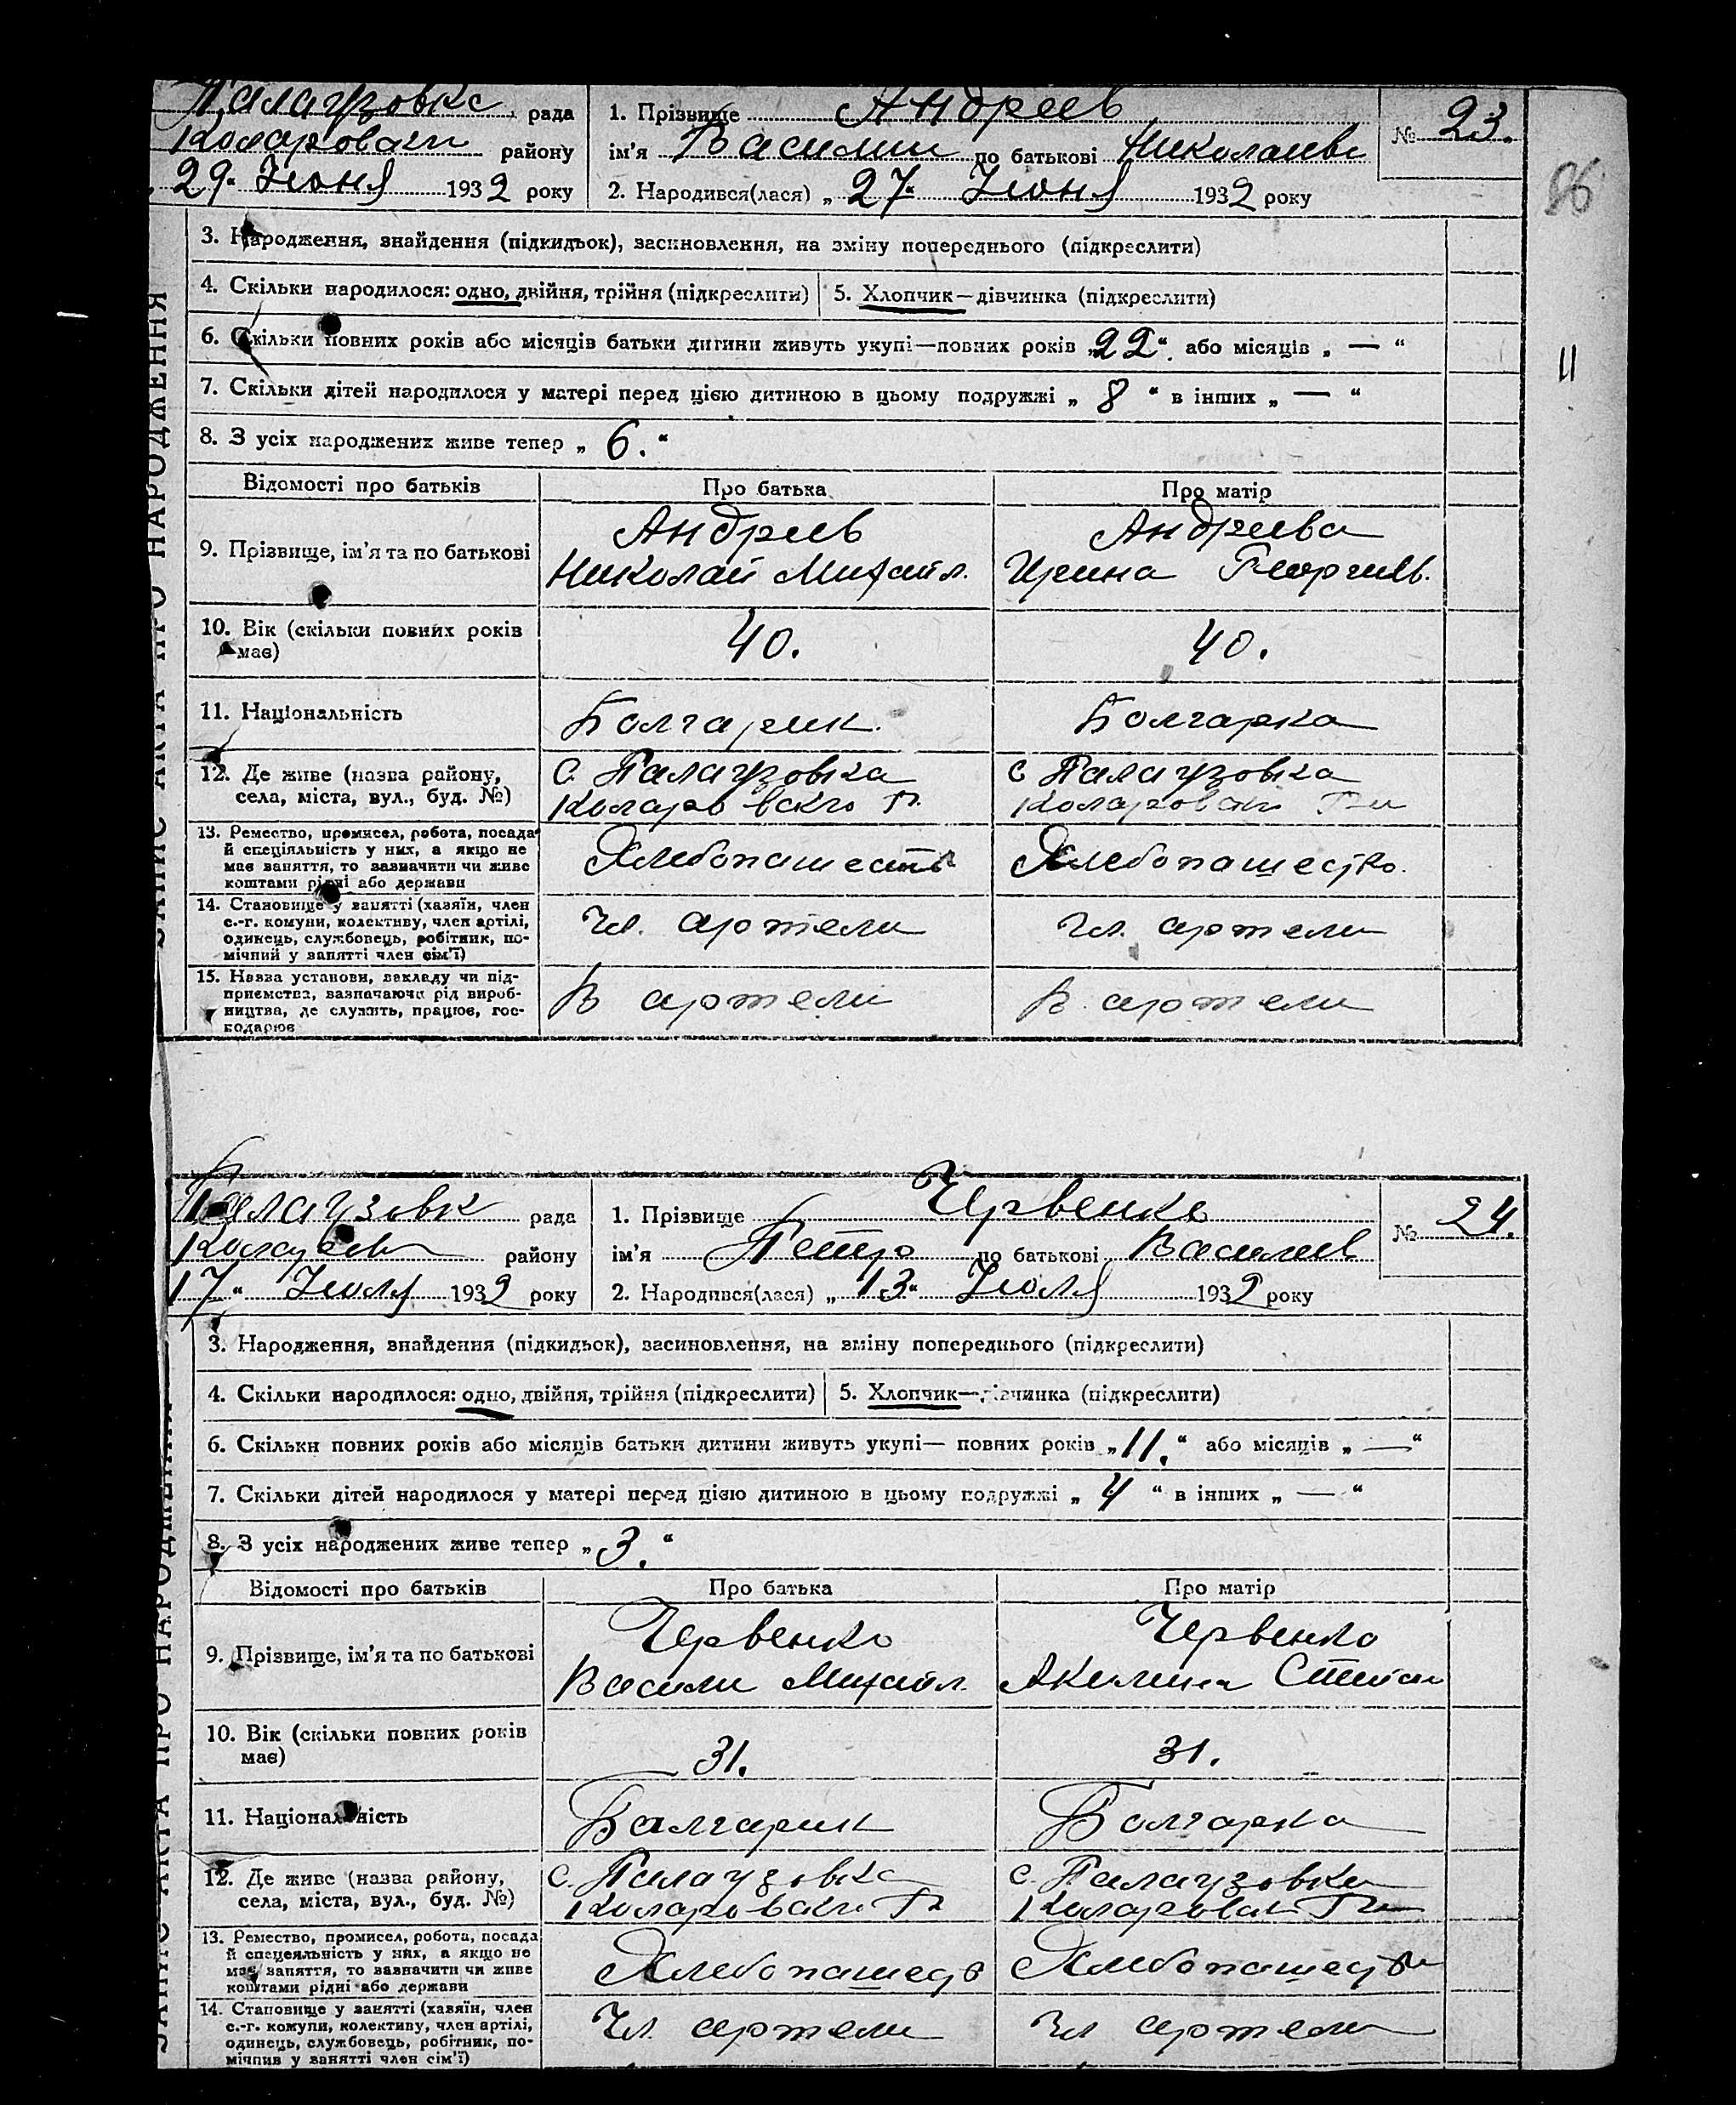 Палаузовка рада
Коларовски району
29 " Июня 1932 року
1. Прізвище Андреев
ім'я Василий по батькові Николаев
2. Народився(лася) „ 27 " Июня 1932 року
№ 23.
86
3. Народження, знайдення (підкидьок), засиновлення, на зміну попереднього (підкреслити)
4. Скільки народилося: одно, двійня, трійня (підкреслити) 5. Хлопчик—дівчинка (підкреслити)
6. Скільки повних років або місяців батьки дитини живуть укупі—повних років „22“ або місяців „ — “
11
7. Скільки дітей народилося у матері перед цією дитиною в цьому подружжі „ 8 “ в інших „ — “
8. З усіх народжених живе тепер „ 6. “
Відомості про батьків Про батька Про матір
9. Прізвище, ім'я та по батькові
Андреев
Николай Михайл.
Андреева
Ирина Георгиев.
10. Вік (скільки повних років
має)
40. 40.
11. Національність Болгарин. Болгарка
12. Де живе (назва району,
села, міста, вул., буд. №)
с. Палаузовка
Коларовского Р.
с Палаузовка
Коларовски Р-н
13. Ремество, промисел, робота, посада
й спеціяльність у них, а якщо не
має заняття, то зазначити чи живе
коштами рідні або держави
Хлебопашество Хлебопашество.
14. Становище у занятті (хазяїн, член
с.-г. комуни, колективу, член артілі,
одинець, службовець, робітник, по-
мічний у занятті член сім'ї)
Чл. артели Чл. артели
15. Назва установи, закладу чи під-
приємства, зазначаючи рід вироб-
ництва, де служить, працює, гос-
подарює
В артели В артели
ЗАПИС АКТА ПРО НАРОДЖЕННЯ
Палаузовк рада
району
17 " Июля 1932 року
1. Прізвище Червенко
ім'я Петро по батькові Васильев
2. Народився(лася) „ 13 " Июля 1932 року
№ 24.
3. Народження, знайдення (підкидьок), засиновлення, на зміну попереднього (підкреслити)
4. Скільки народилося: одно, двійня, трійня (підкреслити) 5. Хлопчик—дівчинка (підкреслити)
6. Скільки повних років або місяців батьки дитини живуть укупі— повних років „11.“ або місяців „ — “
7. Скільки дітей народилося у матері перед цією дитиною в цьому подружжі „ 4 “ в інших „ — “
8. З усіх народжених живе тепер „ 3. “
Відомості про батьків Про батька Про матір
9. Прізвище, ім'я та по батькові
Червенко
Васили Михайл.
Червенко
Акилина Степан
10. Вік (скільки повних років
має)
31. 31.
11. Національність Балгарин Болгарка
12. Де живе (назва району,
села, міста, вул., буд. №)
с. Палаузовка
Коларовского Р-н
с. Палаузовка
Коларовски Р-н
13. Ремество, промисел, робота, посада
й спецеяльність у них, а якщо не
має заняття, то зазначити чи живе
коштами рідні або держави
Хлебопашеств Хлебопашество
14. Становище у занятті (хазяїн, член
с.-г. комуни, колективу, член артілі,
одинець, службовець, робітник, по-
мічник у занятті член сім'ї)
Чл. артели Чл артели
ЗАПИС АКТА ПРО НАРОДЖЕННЯ